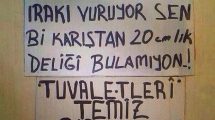 IRAKI VURUYOR SEN
Bİ KARIŞTAN 20 cm lik
DELİĞİ BULAMIYON.!
"TUVALETLERİ"
TEMİZ